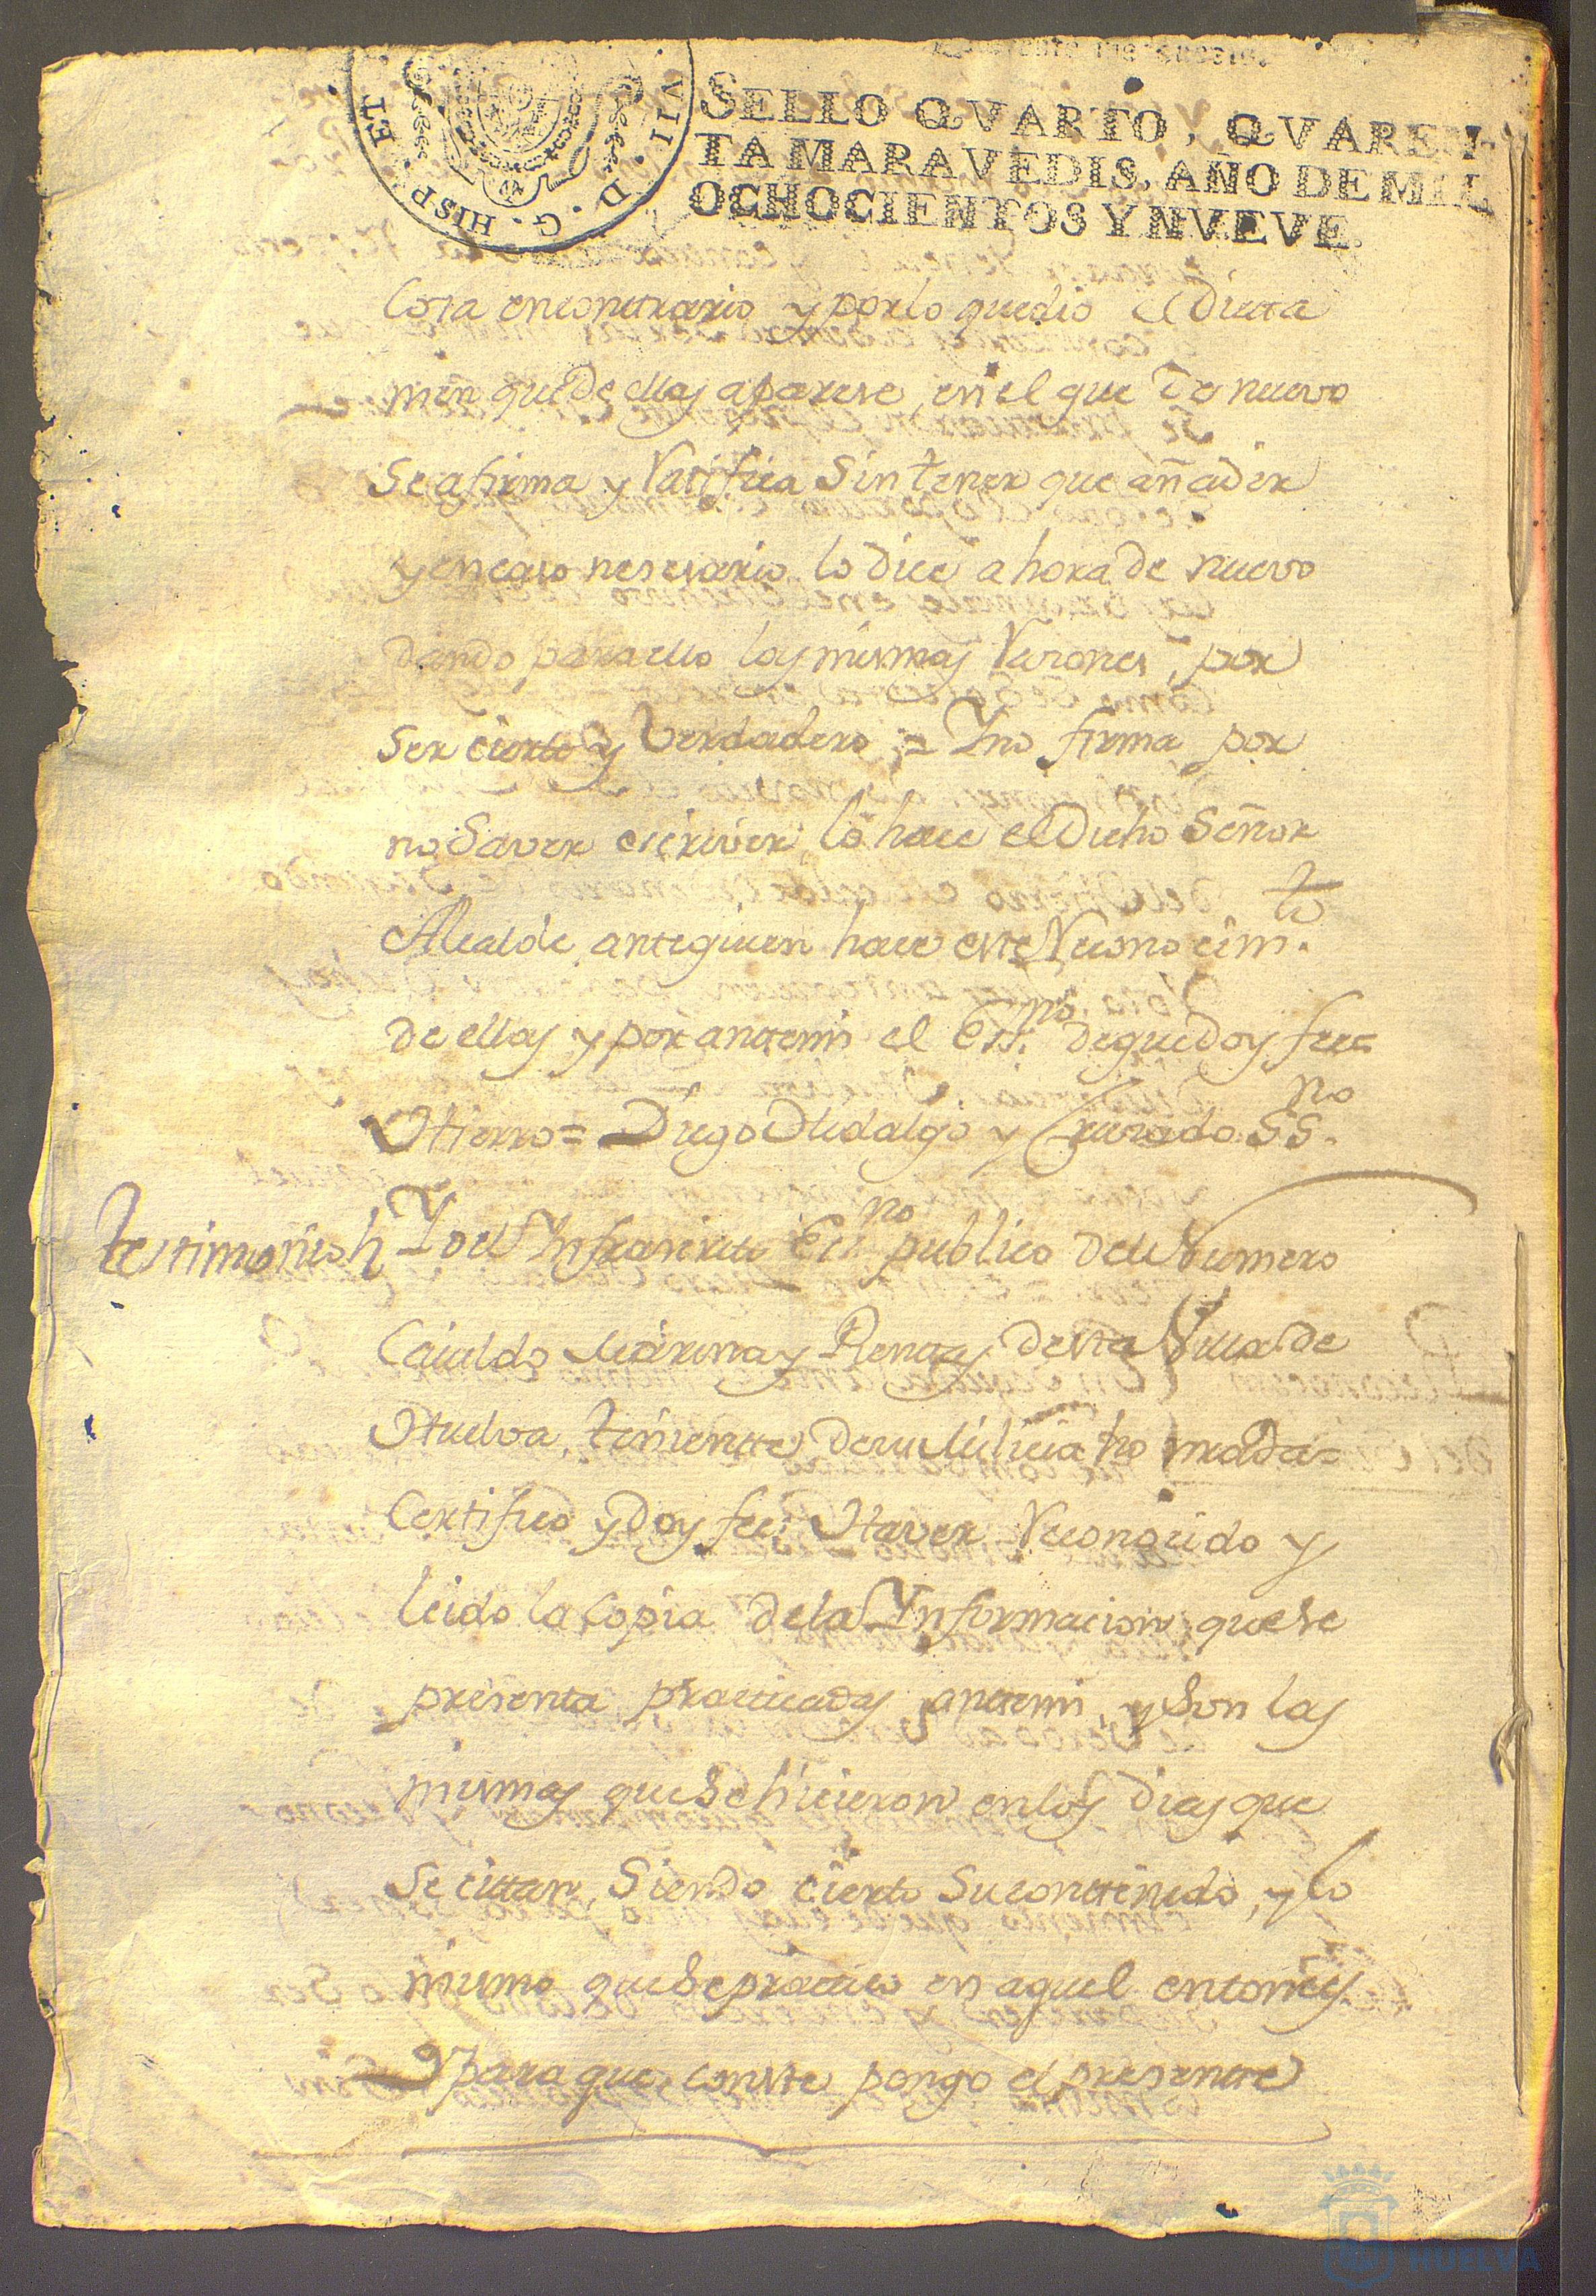 SELLO QVARTO, QVAREN-
TA MARAVEDIS, AÑO DE MIL
OCHOCIENTOS Y NVEVE.
VII . D . G . HISP . ET
cosa encontrario y porlo quedio el Dicta
men que de ellas aparese, en el que de nuevo
Se afirma y Ratifica Sin tener que añadir
y en caso nesesario lo dice ahora de nuevo
dando para ello las mismas Rasones, por
Ser cierto y Verdadero = Y no firma por
no Saver escrivir lo hace el Dicho Señor
Alcalde, ante quien hace este Reconocim.to
de ellas y por ante mi el Ess.no de que doy fee=
Hierro = Diego Hidalgo y Jurado SS.no
testimonio Yo el Infrascrito Ess.no publico del Numero
Cavildo Marina y Rentas desta Villa de
Huelva, teniente de su Milicia honrrada=
Certifico y Doy fee: Haver Reconocido y
leido la Copia de la Informacion que se
presenta practicadas ante mi, y Son las
mismas que Se hicieron en los Dias que
Se cittan, Siendo cierto Su conttenido, y lo
mismo que Se practico en aquel entonces.
Y para que conste pongo el presente
HUELVA